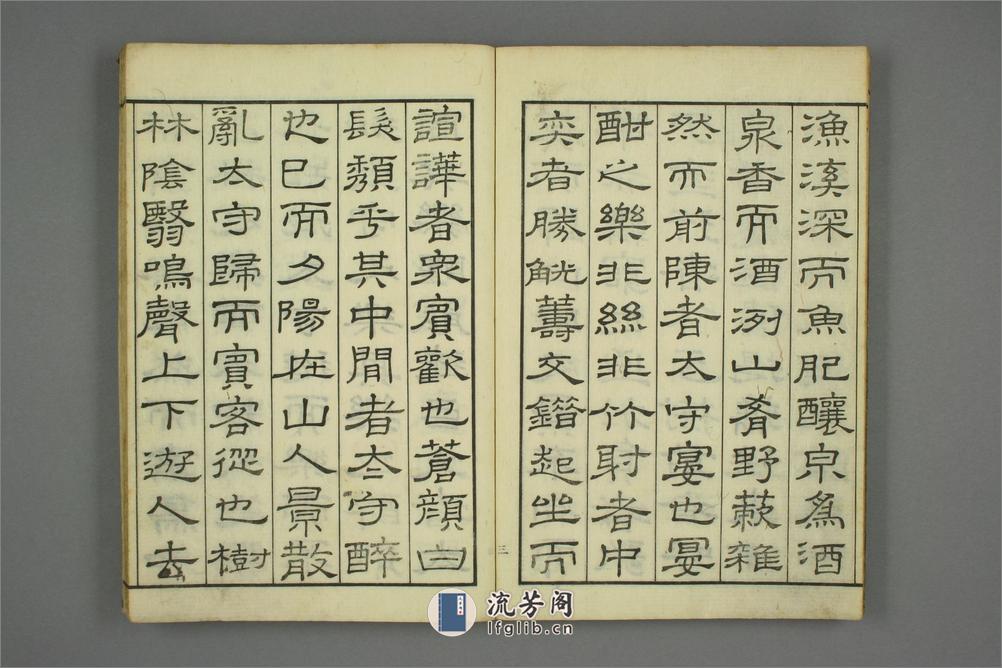 漁溪深而魚肥釀泉爲酒
泉香而酒洌山肴野蔌雜
然而前陳者太守宴也宴
酣之樂非絲非竹射者中
奕者勝觥籌交錯起坐而
三
諠譁者衆賓歡也蒼顔白
髮頹乎其中間者太守醉
也已而夕陽在山人景散
亂太守歸而賓客從也樹
林陰翳鳴聲上下遊人去
流芳阁
lfglib.cn